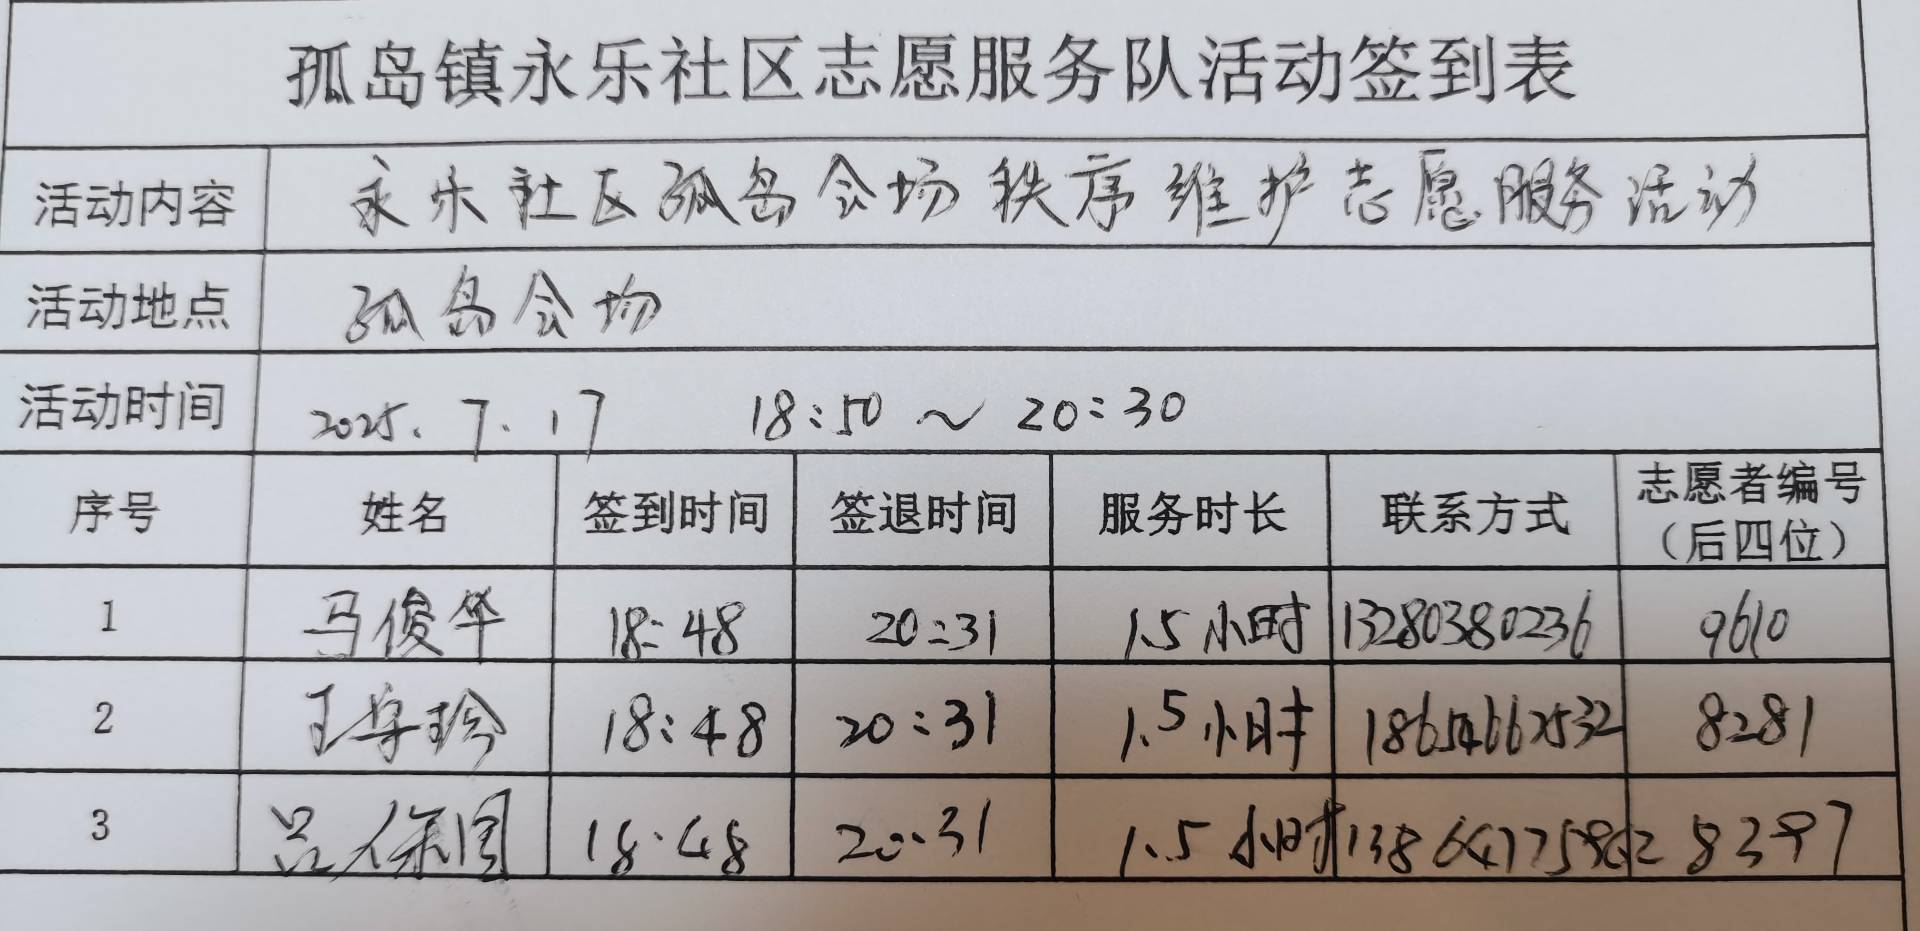 孤岛镇永乐社区志愿服务队活动签到表
活动内容 永乐社区孤岛会场秩序维护志愿服务活动
活动地点 孤岛会场
活动时间 2025.7.17 18:50~20:30
序号 姓名 签到时间 签退时间 服务时长 联系方式 志愿者编号
(后四位)
1 马俊华 18:48 20:31 1.5小时 13280380236 9610
2 王学珍 18:48 20:31 1.5小时 18654662532 8281
3 吕保国 18:48 20:31 1.5小时 8397